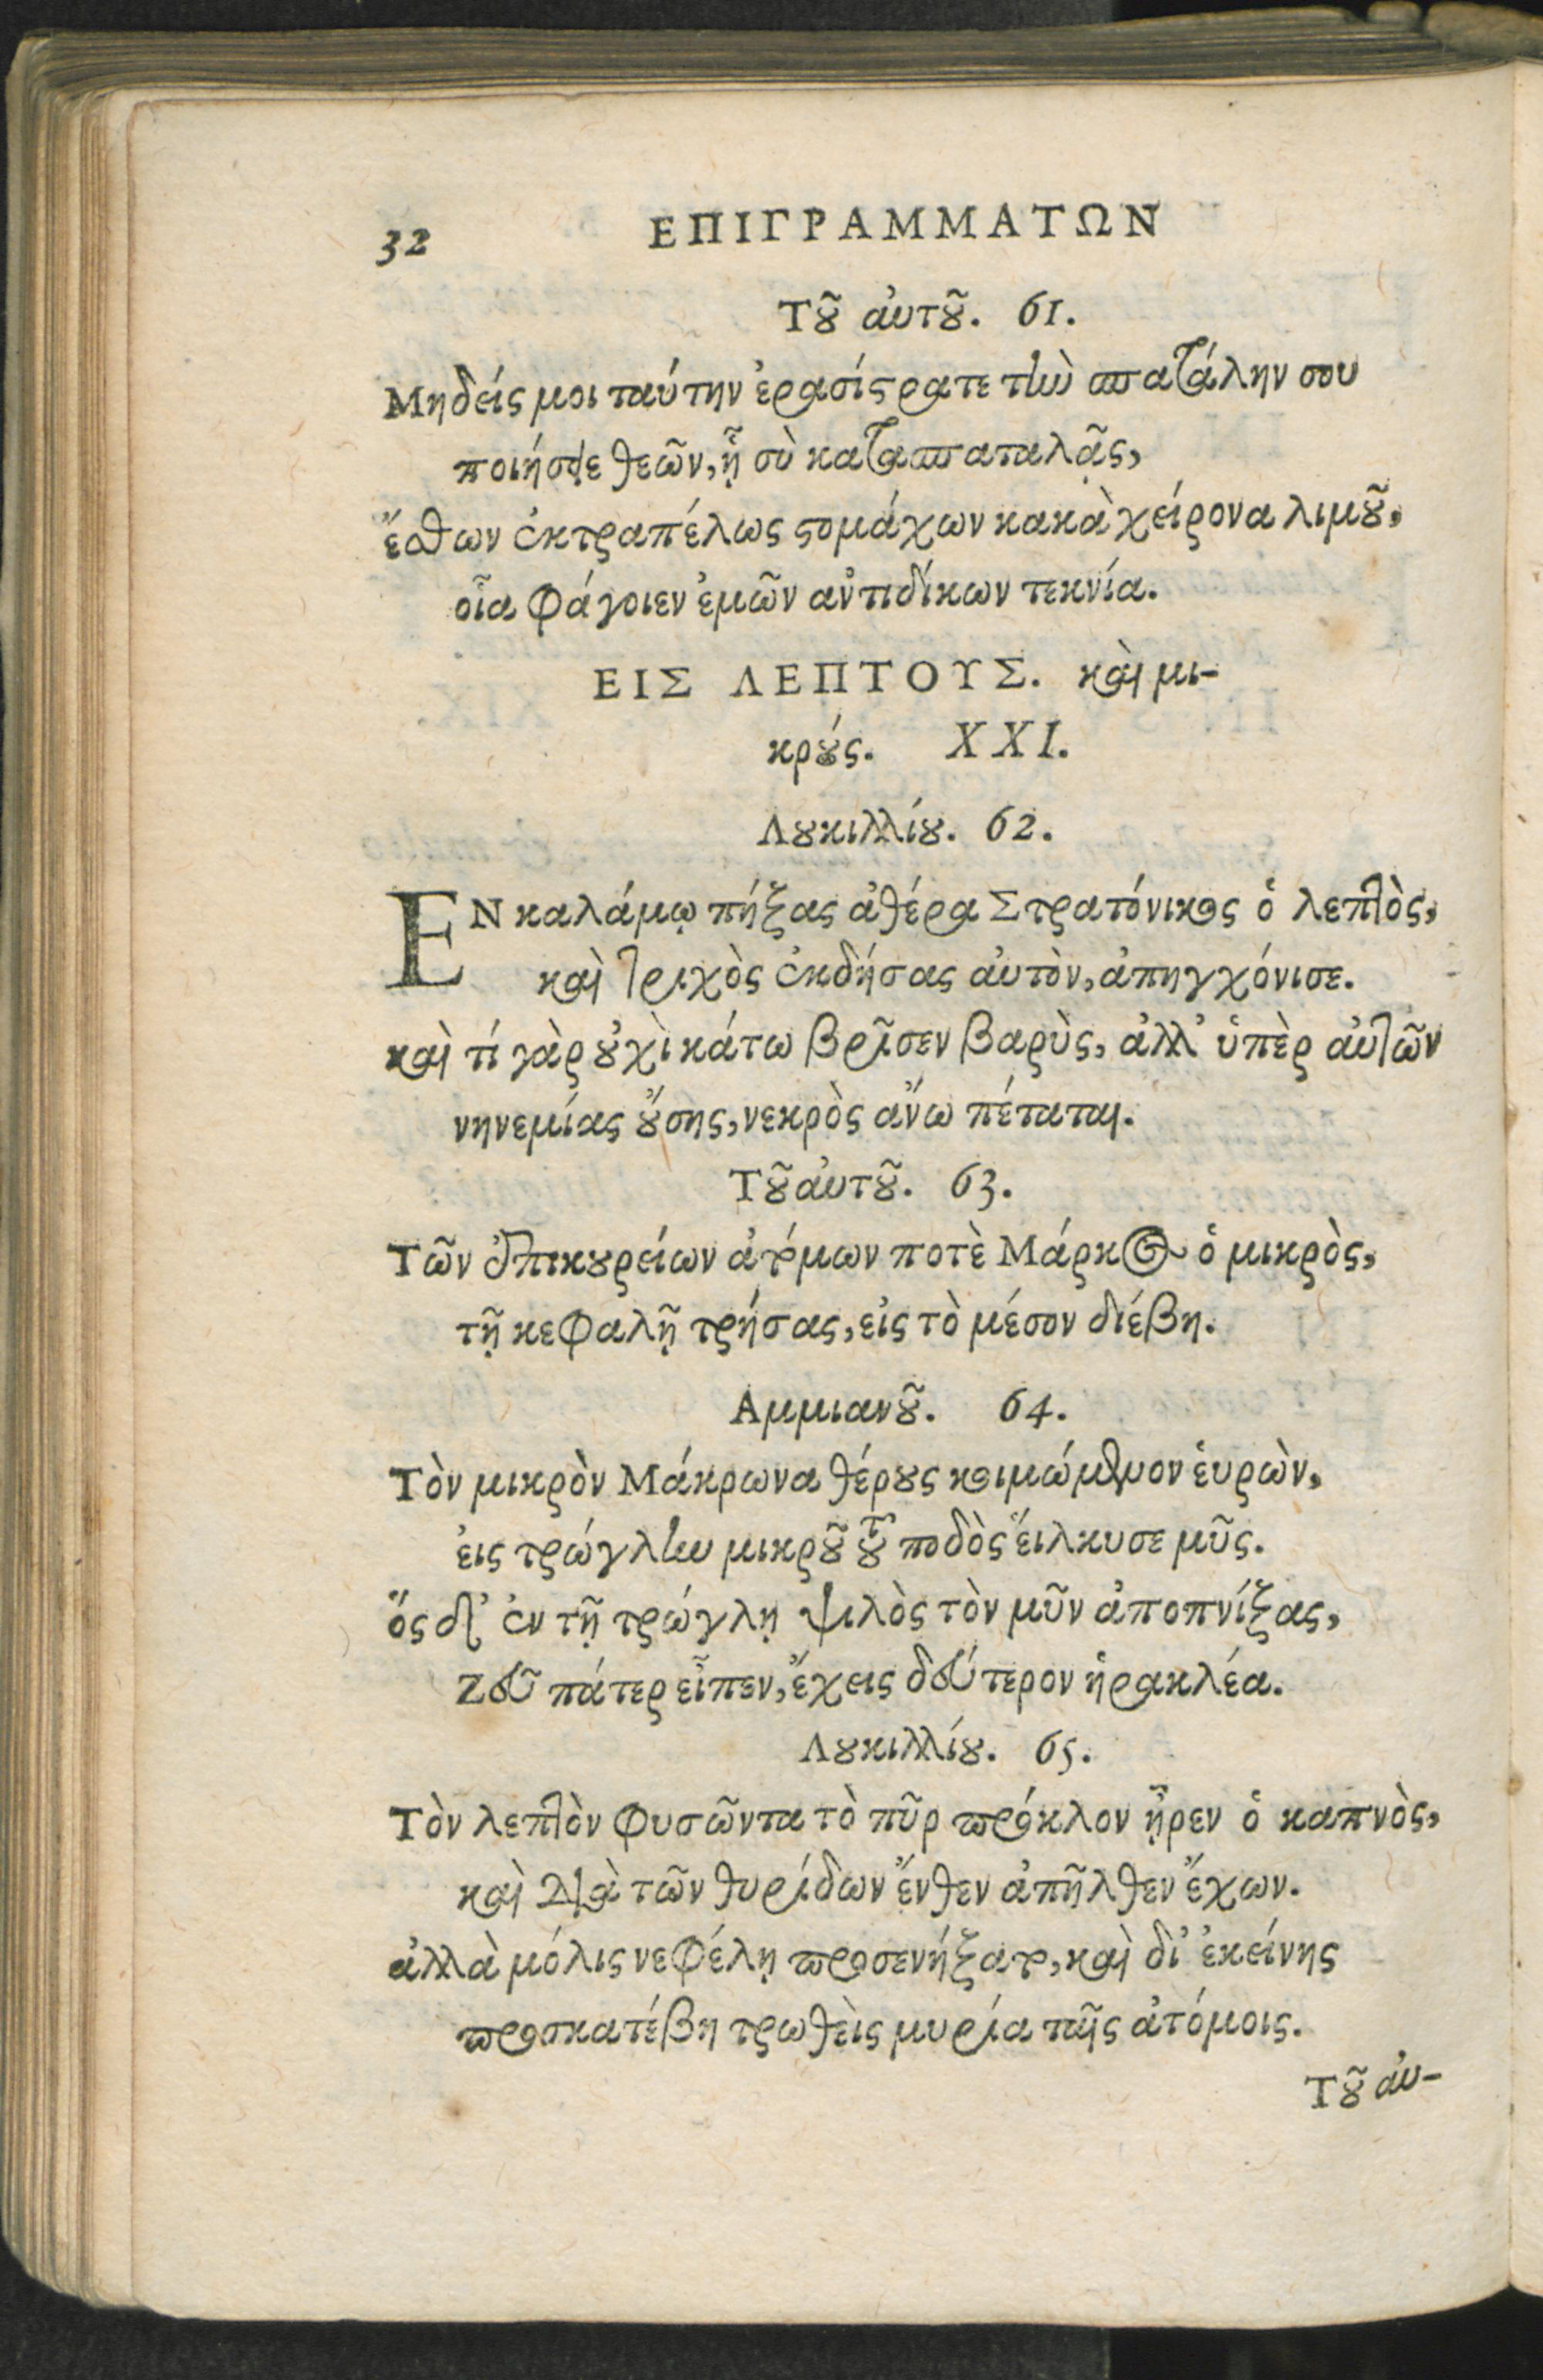 32 ΕΠΙΓΡΑΜΜΑΤΩΝ
Τοῦ ἀυτοῦ. 61.
Μηδείς μοι ταύτην ἐρασίστρατε τὴν σπατάλην σου
ποιήσειε θεῶν, ᾗ σὺ κατασπαταλᾷς,
ἔσθων ἐκτραπέλως στομάχων κακὰ χείρονα λιμοῦ,
οἷα φάγοιεν ἐμῶν ἀντιδίκων τεκνία.
ΕΙΣ ΛΕΠΤΟΥΣ. καὶ μι-
κρούς. XXI.
Λουκιλλίου. 62.
ΕΝ καλάμῳ πήξας ἀθέρα Στρατόνικος ὁ λεπτὸς,
καὶ τριχὸς ἐκδήσας ἀυτὸν, ἀπηγχόνισε.
καὶ τί γὰρ οὐχὶ κάτω βρῖσεν βαρὺς, ἀλλ' ὑπὲρ ἀυτῶν
νηνεμίας οὔσης, νεκρὸς ἄνω πέταται.
Τοῦ ἀυτοῦ. 63.
Τῶν ἐπικουρείων ἀτόμων ποτὲ Μάρκος ὁ μικρὸς,
τῇ κεφαλῇ τρήσας, εἰς τὸ μέσον διέβη.
Αμμιανοῦ. 64.
Τὸν μικρὸν Μάκρωνα θέρους κοιμώμενον ἑυρὼν,
ἐις τρώγλην μικροῦ τοῦ ποδὸς ἕιλκυσε μῦς.
ὅς δ' ἐν τῇ τρώγλῃ ψιλὸς τὸν μῦν ἀποπνίξας,
Ζεῦ πάτερ εἶπεν, ἔχεις δεύτερον ἡρακλέα.
Λουκιλλίου. 65.
Τὸν λεπτὸν φυσῶντα τὸ πῦρ πρόκλον ᾖρεν ὁ καπνὸς,
καὶ διὰ τῶν θυρίδων ἔνθεν ἀπῆλθεν ἔχων.
ἀλλὰ μόλις νεφέλῃ προσενήξατο, καὶ δι' ἐκείνης
προσκατέβη τρωθεὶς μυρία ταῖς ἀτόμοις.
Τοῦ ἀυ-